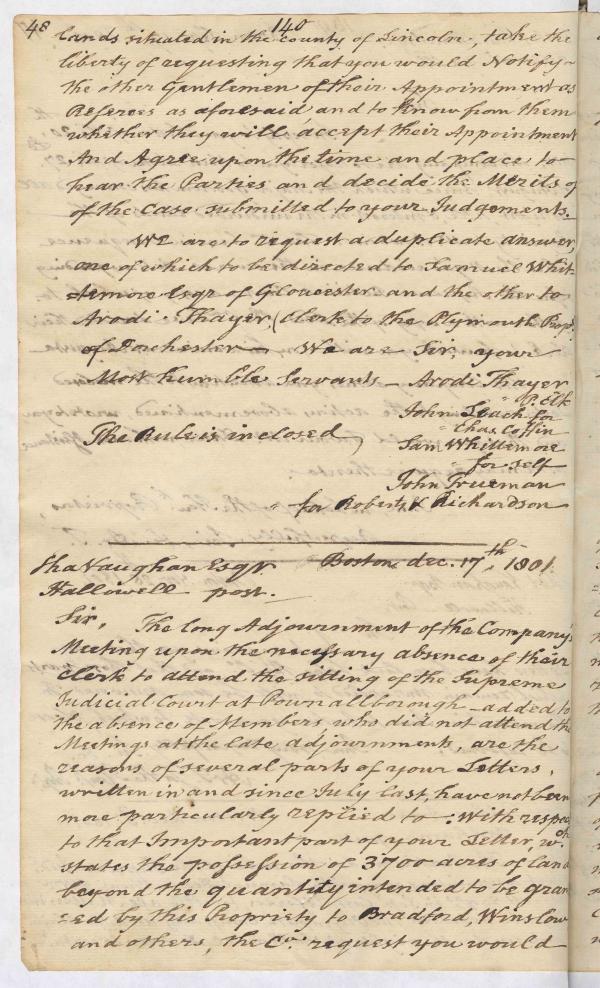 48
140
lands situated in the county of Lincoln, take the
liberty of requesting that you would Notify
the other Gentlemen of their Appointment as
Referees as aforesaid and to know from them
whether they will accept their Appointment
And Agree upon the time and place to
hear the Parties and decide the Merits of
of the case submitted to your Judgements.
We are to request a duplicate answer,
one of which to be directed to Samuel Whit-
=temore Esqr of Gloucester and the other to
Arodi Thayer, (Clerk to the Plymouth Prop.
of Dorchester— We are Sir, your
Most humble Servants— Arodi Thayer
P. Clk
John Leach for
"Chas. Coffin
The Rule is inclosed,
Sam Whittemore
for self
John Trueman
" for Roberts, & Richardson
Boston, dec. 17th, 1801
Cha Vaughan Esqr.
Hallowell post.
Sir,
The long Adjournment of the Company's
Meeting upon the necessary absence of their
Clerk to attend the sitting of the Supreme
Judicial Court at Pownallborough—added to
the absence of Members who did not attend the
Meetings at the late adjournments, are the
reasons of several parts of your Letters,
written in and since July last, have not been
more particularly replied to. With respect
to that Important part of your Letter, wch
states the possession of 3700 acres of land
beyond the quantity intended to be gran
=ed by this Propriety to Bradford, Winslow
and others, the Co. request you would